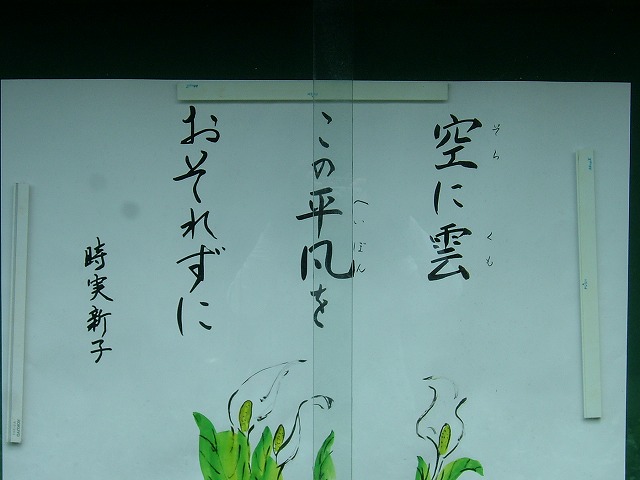 空に雲
そら
くも
この平凡を
へいぼん
おそれずに
時実新子